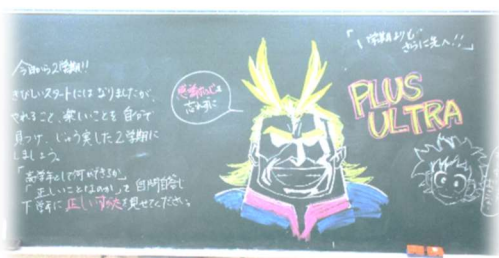 今日から2学期!!
きびしいスタートにはなりましたが、
やれること、楽しいことを自分で
見つけ、じゅう実した2学期に
しましょう。
「高学年として何ができるか」
「正しいことなのか」を自問自答し
下学年に正しい姿を見せてください。
感謝の心を
忘れずに
「1学期よりも
さらに先へ!!」
PLUS
ULTRA